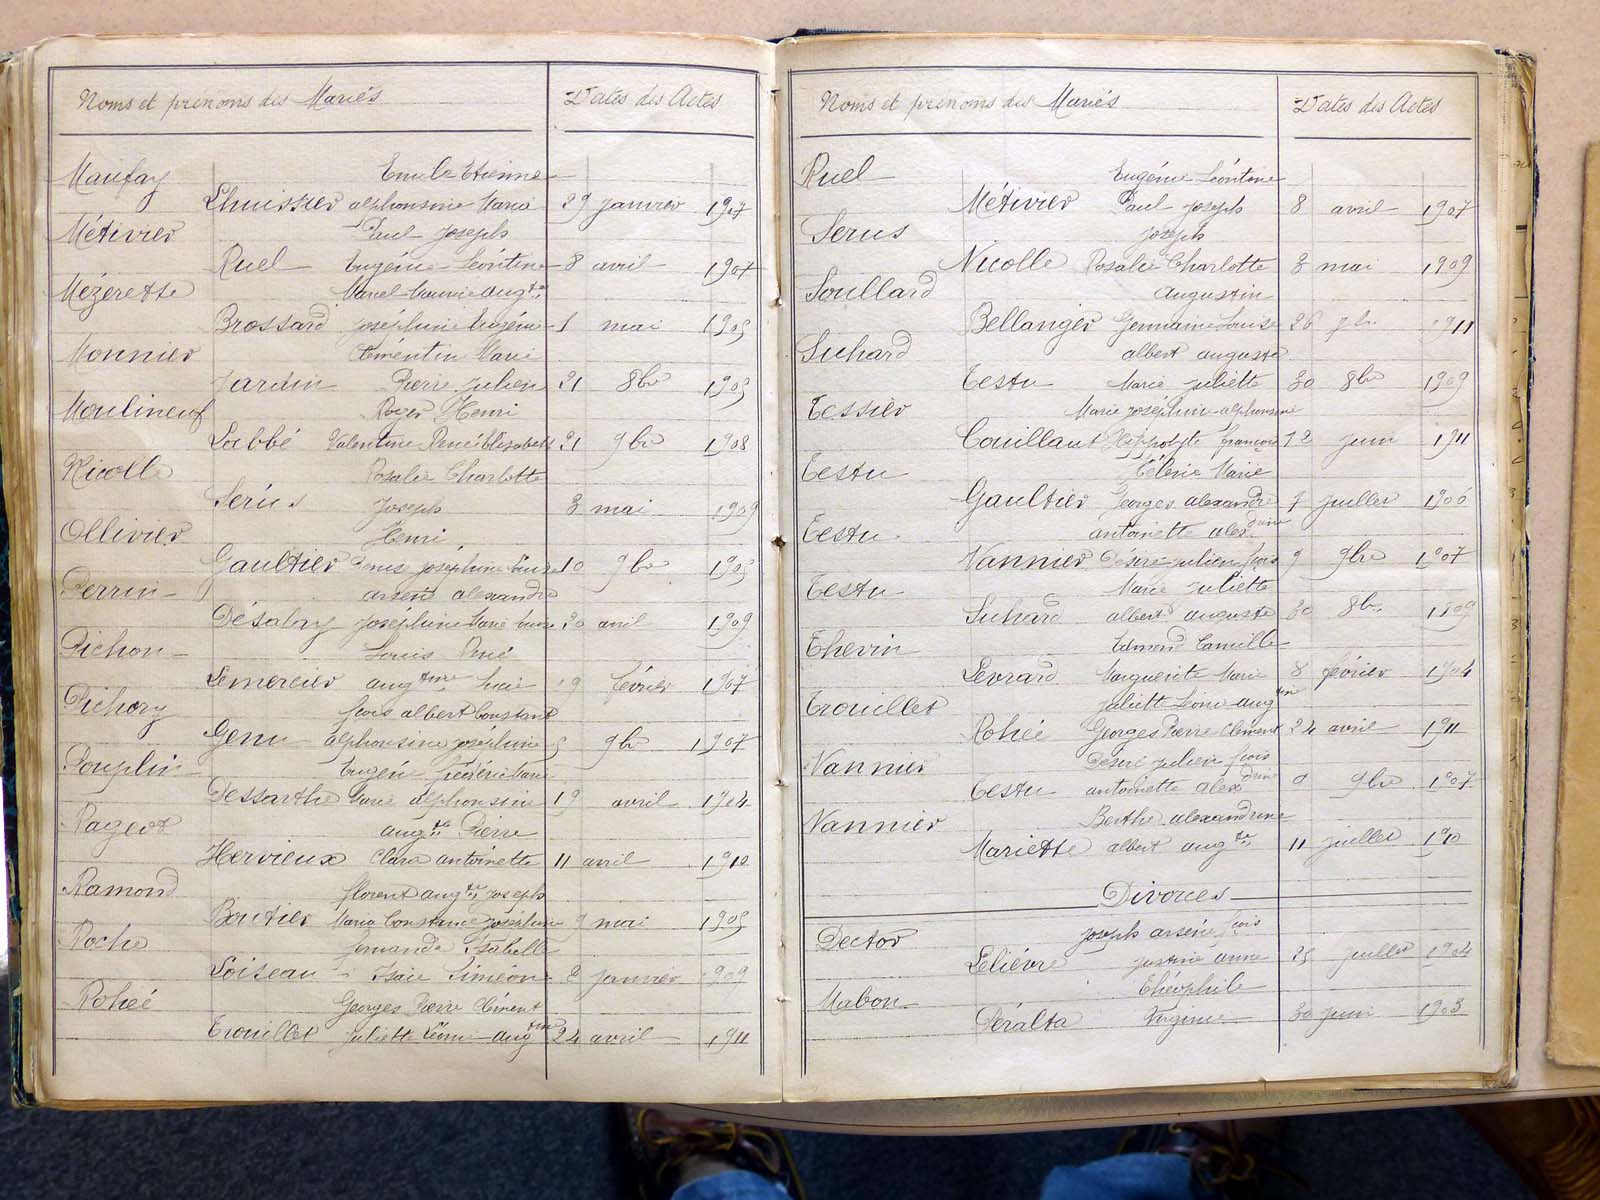 Noms et prénoms des Mariés Dates des Actes
Maufay Emile Etienne
Lhuissier alphonsine Marie 29 janvier 1907
Métivier Paul Joseph
Ruel Eugénie Léontine 8 avril 1907
Mézerette Marcel Marie augte
Brossard Joséphine Eugénie 1 mai 1905
Monnier Clémentin Marie
Jardin Pierre Julien 21 8bre 1905
Moulineuf Roger Henri
Labbé Valentine Renée Elisabeth 21 9bre 1908
Nicolle Rosalie Charlotte
Serus Joseph 3 mai 1909
Ollivier Henri
Gaultier Denise Joséphine Louise 10 9bre 1905
Perrin arsène alexandre
Désalry Joséphine Marie Louise 30 avril 1909
Pichon Louis René
Lemercier augtine 19 février 1907
Pichory fcois albert Constant
Genu alphonsine Joséphine 5 9bre 1907
Pouplin Eugène Frédéric Marie
Dessarthe Marie alphonsine 19 avril 1904
Pageot augte Pierre
Hervieux Clara antoinette 11 avril 1910
Ramond florent augte Joseph
Boutier Maria Constance Joséphine 9 mai 1905
Roche fernande Isabelle
Loiseau Isaïe Siméon 2 janvier 1909
Rohée Georges Pierre Clément
Trouillet Juliette Léonie augtine 24 avril 1911
Noms et prénoms des Mariés Dates des Actes
Ruel Eugénie Léontine
Métivier Paul Joseph 8 avril 1907
Serus Joseph
Nicolle Rosalie Charlotte 3 mai 1909
Soullard Augustin
Bellanger Germaine Louise 26 1911
Suhard albert auguste
Testu Marie Juliette 30 8bre 1909
Tessier Marie Joséphine alphonsine
Couillaut Hippolyte françois 12 juin 1911
Testu Célerie Marie
Gaultier Georges alexandre 7 juillet 1906
Testu antoinette alexdrine
Vannier Désiré Julien fcois 9 9bre 1907
Testu Marie Juliette
Suhard albert auguste 30 8bre 1909
Thevin Edmond Camille
Levrard Marguerite Marie 8 février 1904
Trouillet Juliette Léonie augtine
Rohée Georges Pierre Clément 24 avril 1911
Vannier Désiré Julien fcois
Testu antoinette alexdrine 9 9bre 1907
Vannier Berthe alexandrine
Mariette albert augte 11 juillet 1910
Divorces
Dector Joseph arsène fcois
Lelièvre Justine anne 25 juillet 1904
Mabon Théophile
Péralta Virginie 30 juin 1903